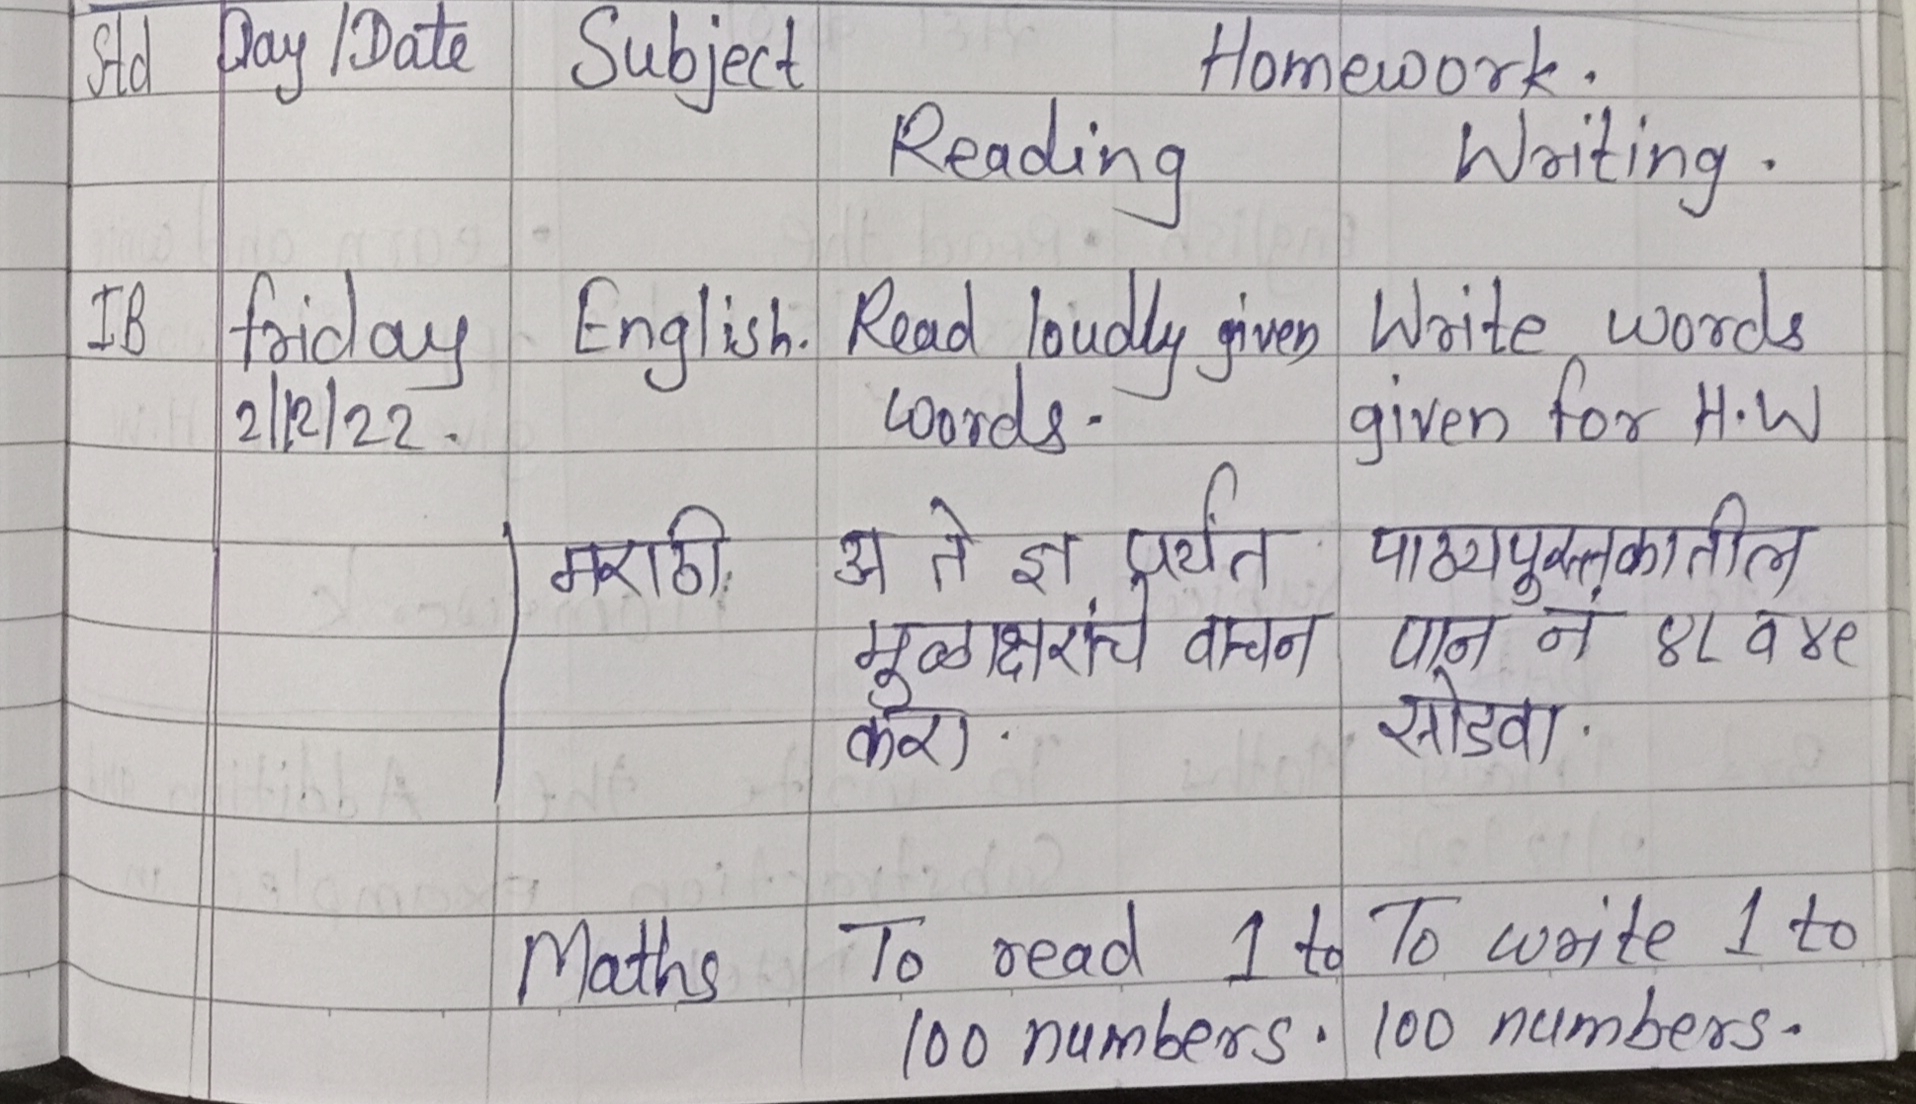 Std Day/Date Subject Homework.
Reading Writing.
IB friday English. Read loudly given Write words
2/12/22. words. given for H.W
मराठी. अ ते ज्ञ पर्यंत पाठ्यपुस्तकातील
मूळाक्षरांचे वाचन पान नं ४८ व ४९
करा. सोडवा.
Maths To read 1 to To write 1 to
100 numbers. 100 numbers.